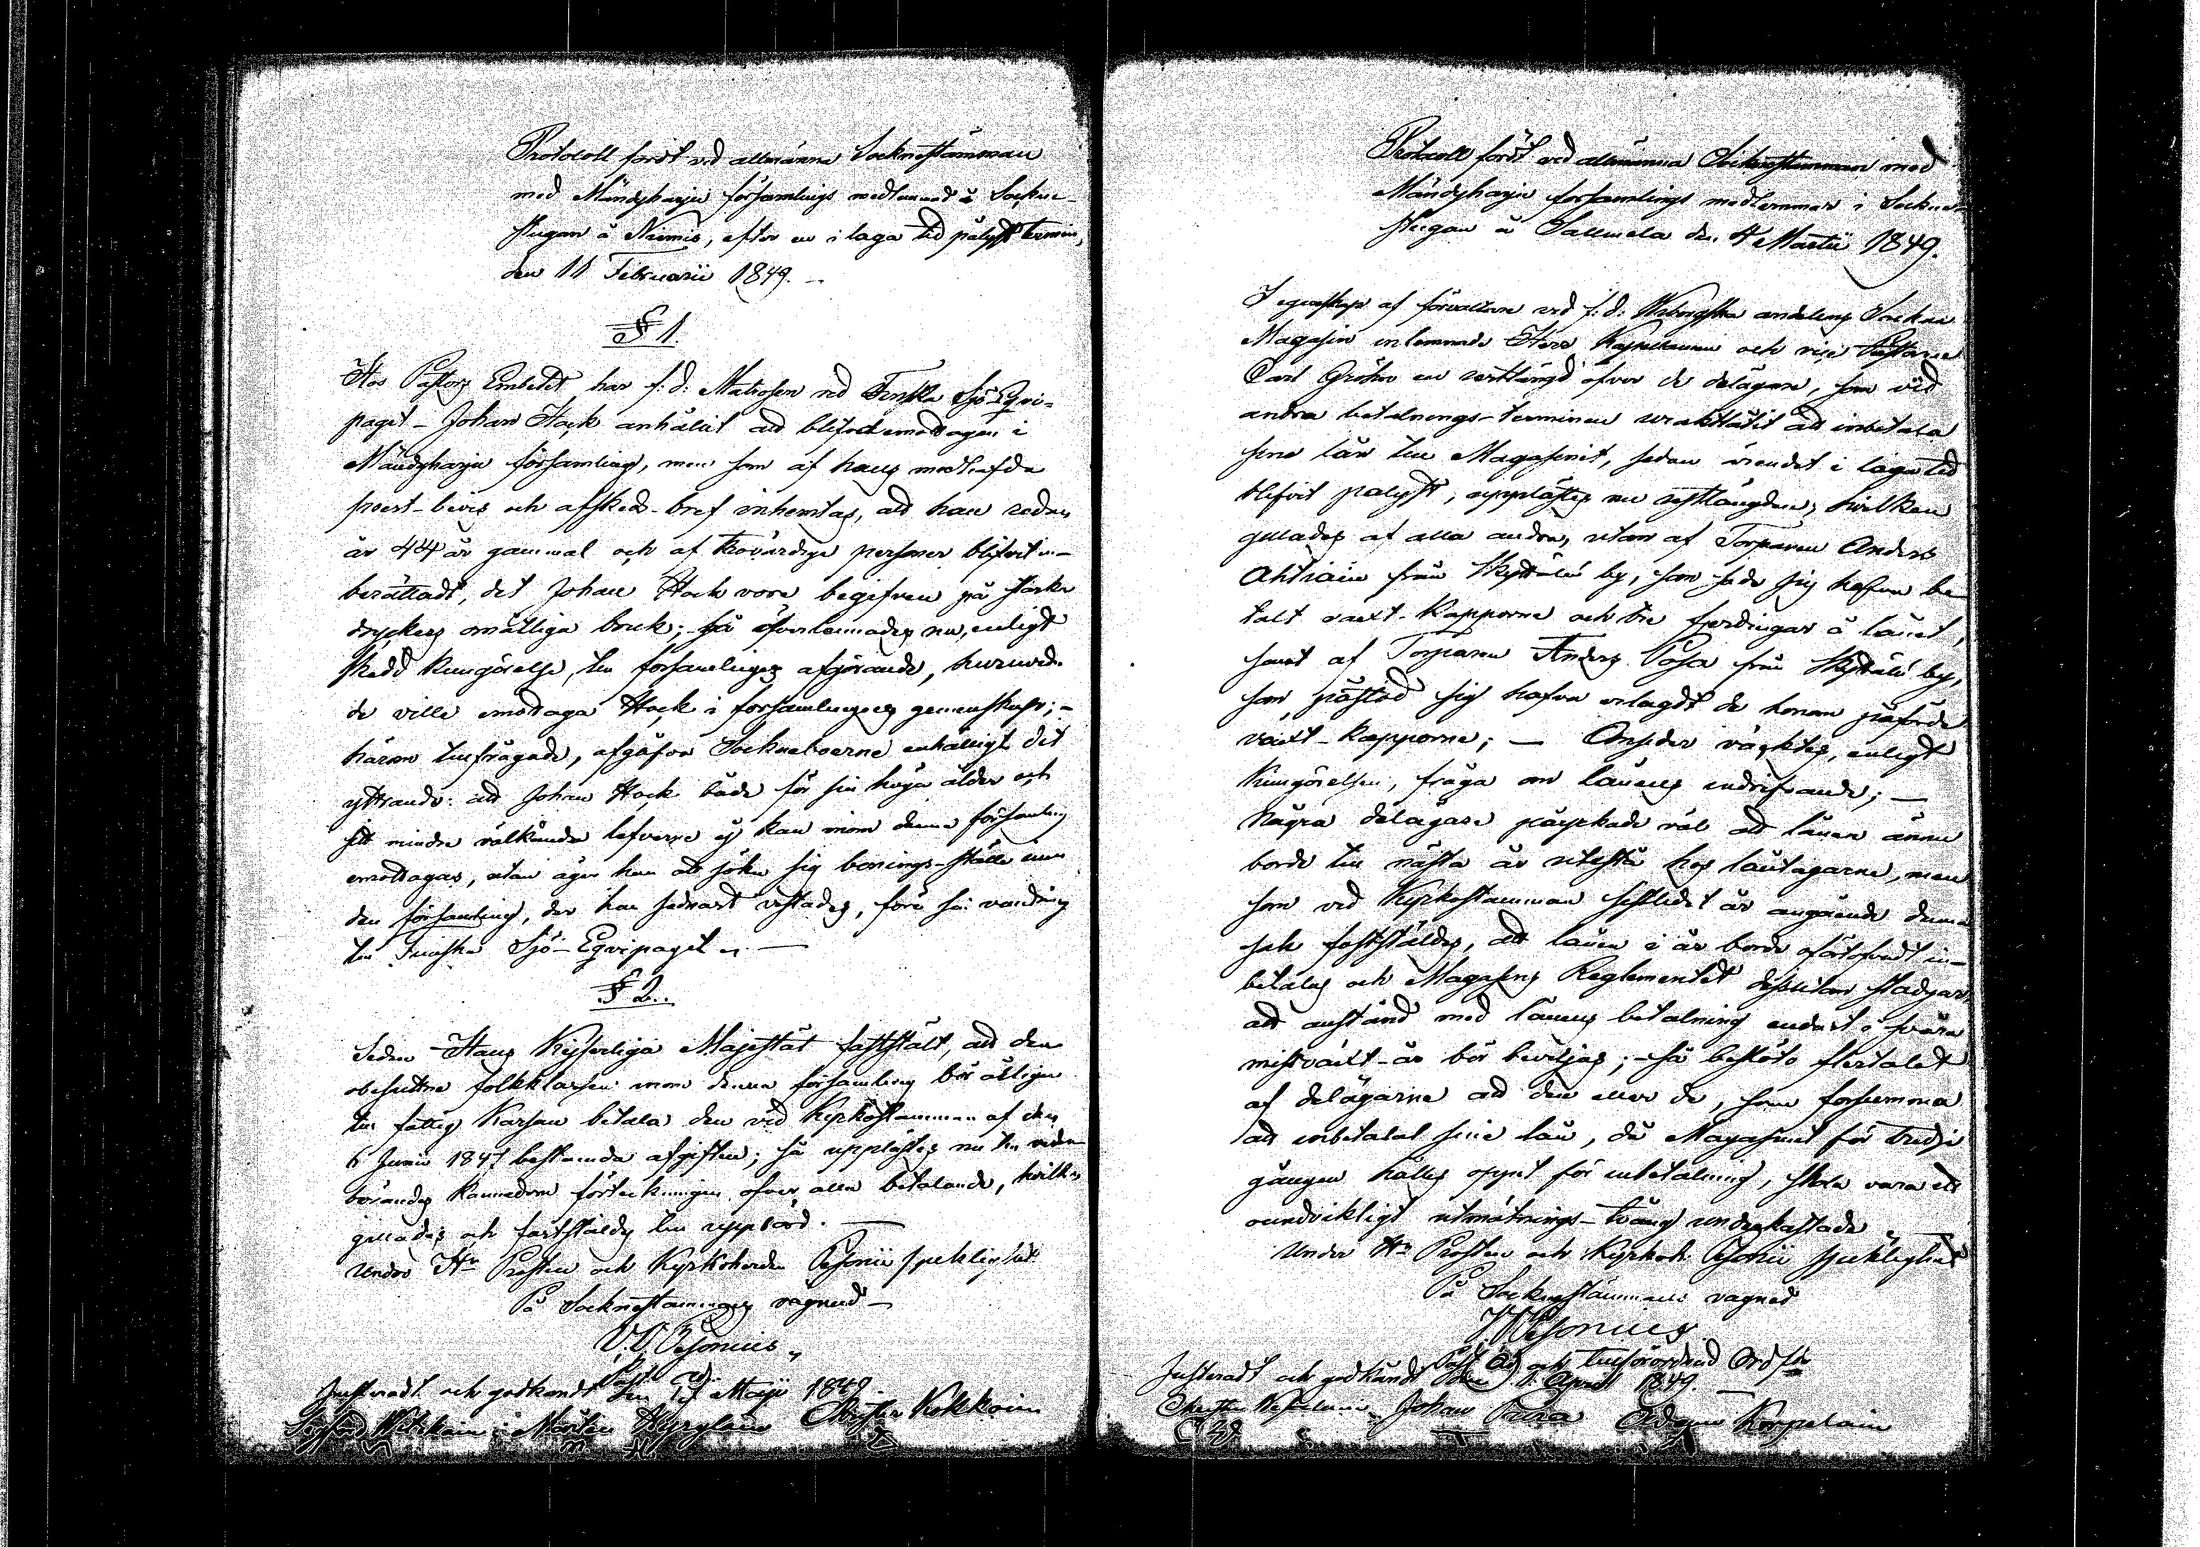 Protocoll fördt vid allmänna Socknestämman
med Mändyharju församlings medlemmar å Sockne-
stugan å Niemis, efter en i laga tid pålyst termin,
den 11 Februarii 1849.
§ 1.
Hos Pastors Embetet har f. d. Matrosen vid Finska Sjö Eqvi-
paget - Johan Hock anhållit att blifva emottagen i
Mändyharju församling, men som af hans medhafda
prest-bevis och afskeds-bref inhemtas, att han redan
är 44 år gammal och af trovärdiga personer blifvit in-
berättadt, det Johan Hock vore begifven på starka
dryckers omåttliga bruk; så öfverlemnades nu, enligt
skedd kungörelse, till församlingens afgörande, huruvida
de ville emottaga Hock i församlingens gemenskap; -
härom tillfrågade, afgåfvo Sockneboerne enhälligt det
yttrande: att Johan Hock både för sin höga ålder och
sitt mindre välkända lefverne ej kan inom denna församling
emottagas, utan äger han att söka sig bonings-ställe inom
den församling, der han sednast vistades, före sin vandring
till Finska Sjö-Eqvipaget. —
§ 2.
Sedan Hans Kejserliga Majestät fastställt, att den
obesuttne folkklassen inom denna församling bör årligen
till fattig Kassan betala den vid Kyrkostämman af den
6 Junii 1847 bestämda afgiften; så upplästes nu till veder-
börandes kännedom förteckningen öfver alla betalande, hvilken
gillades och fastställdes till uppbörd. —
Under Hr Prosten och Kyrkoherden Pesonii sjuklighet
På Socknestämmans vägnar —
V. V. Pesonius
Justeradt och godkändt den Maji 1849.
Mårten Christer Kokkoin
Protocoll fördt vid allmänna Socknestämman med
Mändyharju församlings medlemmar i Sockne-
stugan å Sallmela den 4 Martii 1849.
I egenskap af förvaltare vid f. d. Wiborgska andelens Sockne
Magasin inlemnade Herr Kapellanen och vice Pastorn
Carl Gröhn en restlängd öfver de delägare, som vid
andra betalnings-terminen uraktlåtit att inbetala
sina lån till Magasinet, sedan ärendet i laga tid
blifvit pålyst, upplästes nu restlängden, hvilken
gillades af alla andra, utom af Torparen Anders
Ahtiain från Skyttälä by, som sade sig hafva be-
talt växt-kapporne och tre fjerdingar å lånet,
samt af Torparen Anders Posa från Skyttälä by,
som påstod sig hafva erlagdt de honom påförde
växt-kapporne; — Omsider väcktes, enligt
kungörelsen, fråga om lånens indrifvande; —
Några delägare påyrkade väl att lånen ännu
borde till nästa år utestå hos låntagarne, men
som vid Kyrkostämman sistledit år angående denna
sak fastställdes, att lånen i år borde oförtöfvadt in-
betalas och Magasins Reglementet dessutom stadgar,
att anstånd med lånens betalning endast i svåra
missväxt-år bör beviljas; — så beslöto flertalet
af delägarne att den eller de, som försumma
att inbetala sine lån, då Magasinet för tredje
gången hålles öppet för inbetalning, skola vara ett
oundvikligt utmätnings-tvång underkastade.
Under Hr Prosten och Kyrkoh. Pesonii sjuklighet
På Socknestämmans vägnar
V V Pesonius
Past. Adj. och tillförordnad Ordf.
Justeradt och godkändt den 1 April 1849.
Johan Pura Adam Korpelain